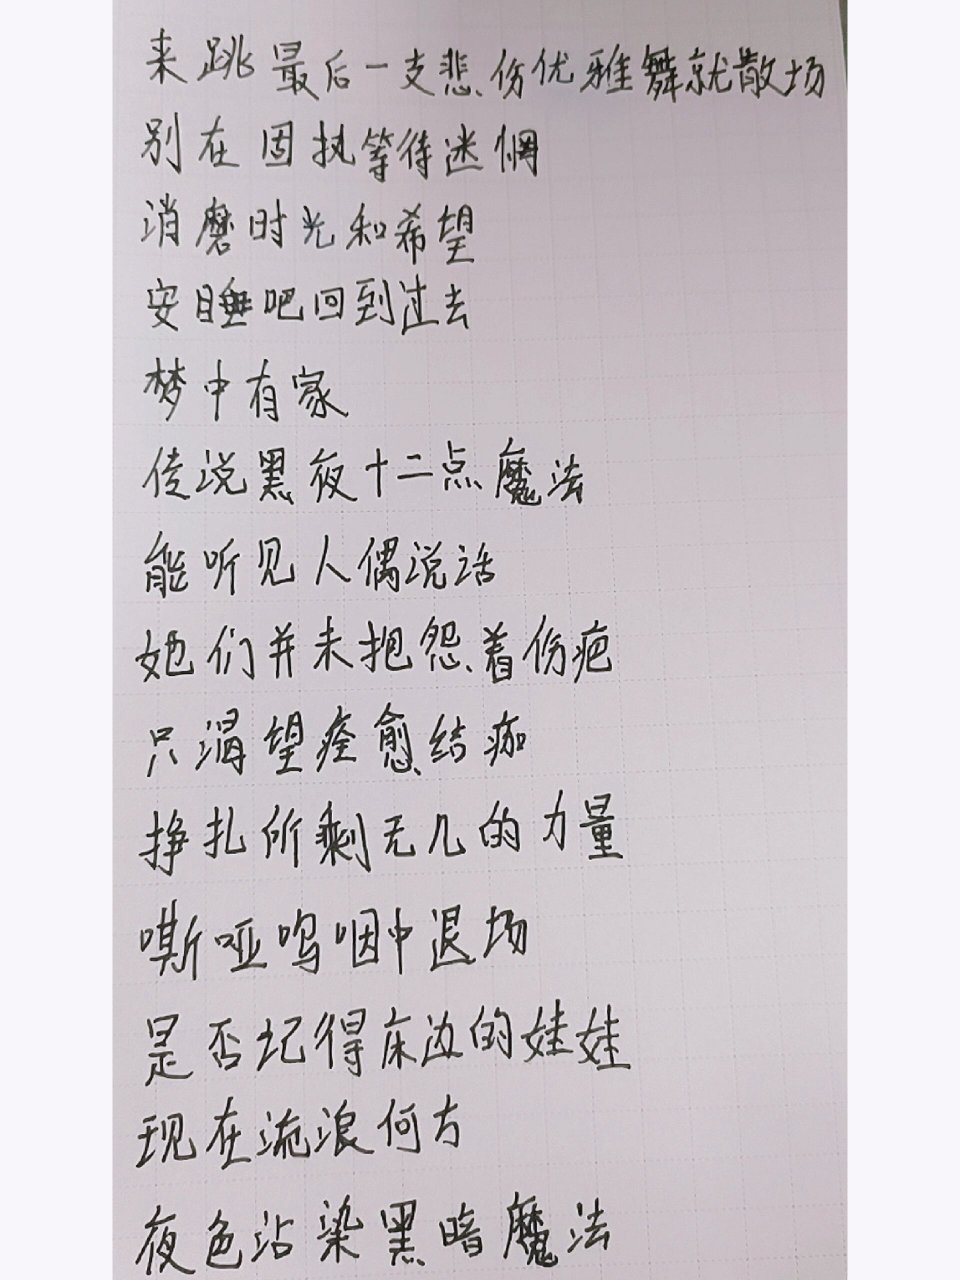 来跳最后一支悲伤优雅舞就散场
别在固执等待迷惘
消磨时光和希望
安睡吧回到过去
梦中有家
传说黑夜十二点魔法
能听见人偶说话
她们并未抱怨着伤疤
只渴望痊愈结痂
挣扎所剩无几的力量
嘶哑呜咽中退场
是否记得床边的娃娃
现在流浪何方
夜色沾染黑暗魔法